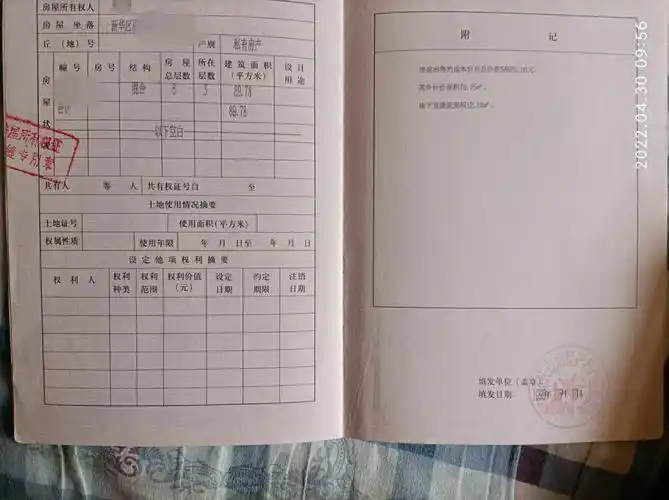 房屋所有权人
房屋坐落 新华区
丘（地）号 产别 私有房产
幢号 房号 结构 房屋总层数 所在层数 建筑面积（平方米） 设计用途
混合 6 3 89.78
合计 89.78
以下空白
房屋状
共有人 等 人 共有权证号自 至
土地使用情况摘要
土地证号 使用面积(平方米)
权属性质 使用年限 年 月 日至 年 月 日
设定他项权利摘要
权利人 权利种类 权利范围 权利价值（元） 设定日期 约定期限 注销日期
附记
填发单位（盖章）
填发日期
2022.04.30 09:56